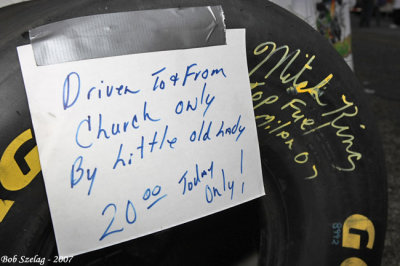 Driven To & From
Church only
By Little old Lady
20.00 Today
only!
Mitch King
Top Fuel
Milan 07
GO
G
Bob Szelag - 2007